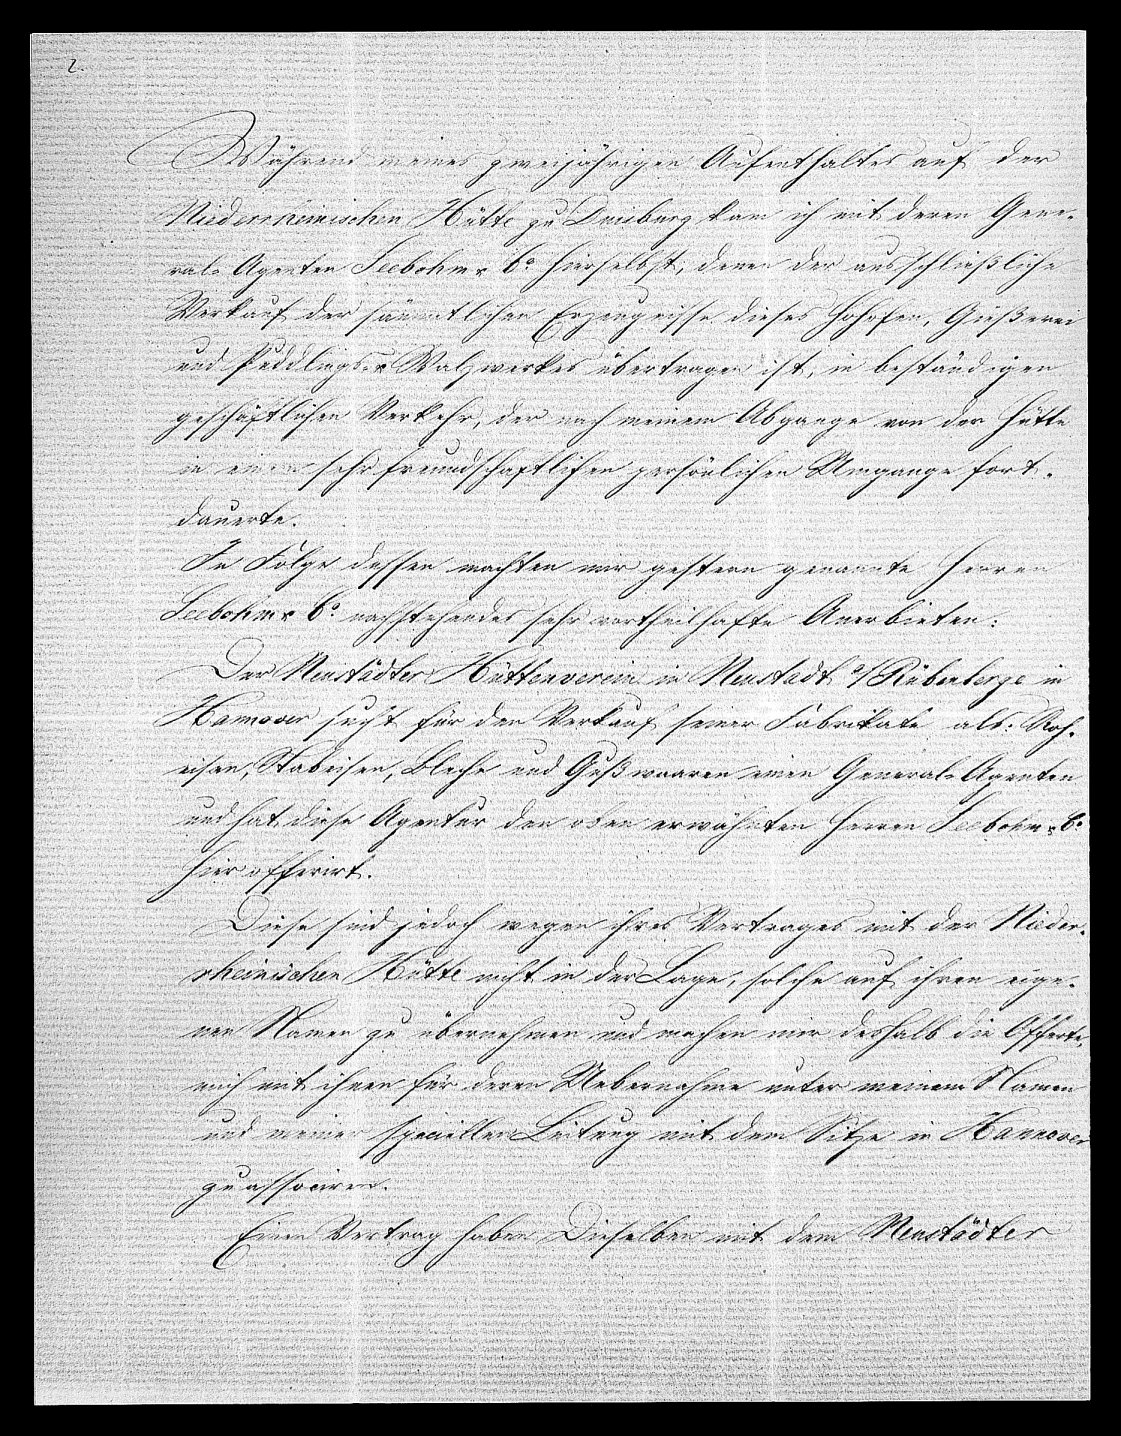 2.
Während meines zweijährigen Aufenthaltes auf der
Niederrheinischen Hütte zu Duisburg kam ich mit deren Gene-
ral-Agenten Seebohm & Co hierselbst, denen der ausschließliche
Verkauf der sämmtlichen Erzeugnisse dieses Hohofen, Gießerei
und Puddlings- & Walzwerkes übertragen ist, in beständigen
geschäftlichen Verkehr, der nach meinem Abgange von der Hütte
in einem sehr freundschaftlichen persönlichen Umgange fort-
dauerte.
In Folge dessen machten mir gestern genannte Herren
Seebohm & Co nachstehendes sehr vortheilhafte Anerbieten:
Der Neustädter Hüttenverein in Neustadt a/Rübenberge in
Hannover sucht für den Verkauf seiner Fabrikate als: Roh-
eisen, Stabeisen, Bleche und Gußwaaren einen General-Agenten
und hat diese Agentur den oben erwähnten Herren Seebohm & Co
hier offerirt.
Diese sind jedoch wegen ihres Vertrages mit der Nieder-
rheinischen Hütte nicht in der Lage, solche auf ihren eige-
nen Namen zu übernehmen und machen mir deshalb die Offerte,
mich mit ihnen für deren Uebernahme unter meinem Namen
und meiner speciellen Leitung mit dem Sitze in Hannover
zu associren.
Einen Vertrag haben Dieselben mit dem Neustädter